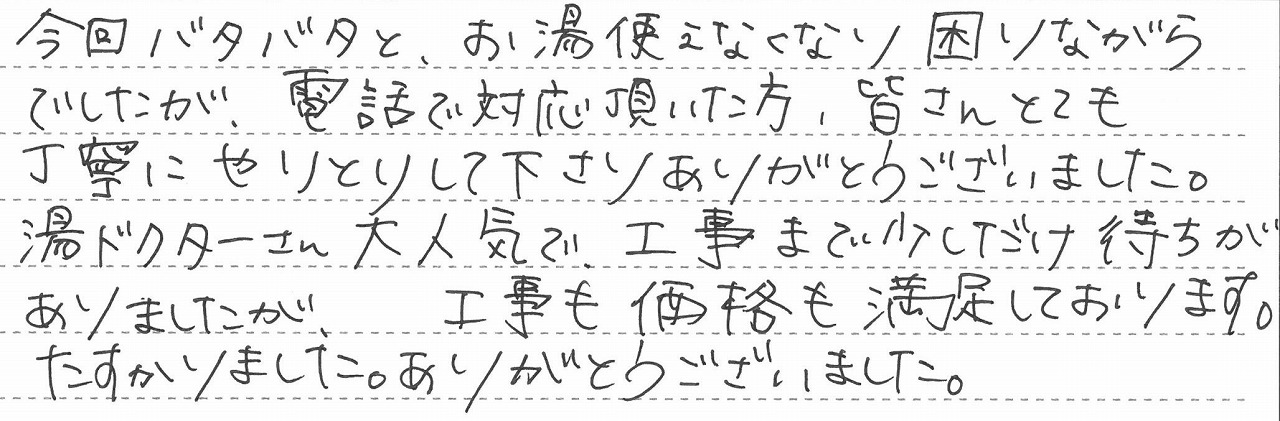 今回バタバタと、お湯使えなくなり困りながら
でしたが、電話で対応頂いた方、皆さんとても
丁寧にやりとりして下さりありがとうございました。
湯ドクターさん大人気で、工事まで少しだけ待ちが
ありましたが、 工事も価格も満足しております。
たすかりました。ありがとうございました。